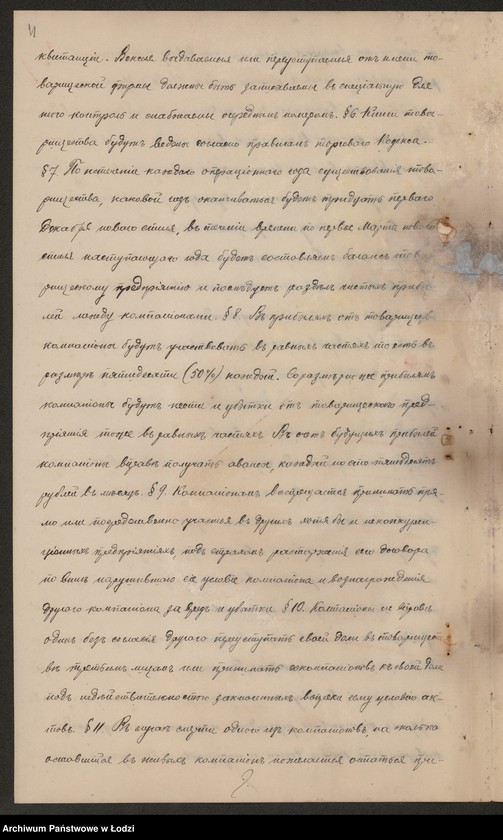 квитанціи. Векселя выдаваемыя или переуступаемыя отъ имени то-
варищеской фирмы должны быть записываемы въ спеціальную для
того контроль и снабжаемы очереднымъ номеромъ. § 6. Книги това-
рищества будутъ ведены согласно правиламъ торговаго Кодекса.
§ 7. По истеченіи каждаго операціоннаго года существованія това-
рищества, каковой годъ оканчиваться будетъ тридцать перваго
Декабря новаго стиля, въ теченіи времени по первое Марта новаго
стиля наступающаго года будетъ составляемъ балансъ
предпріятію и послѣдуетъ раздѣлъ чистыхъ прибы-
лей между компаніонами. § 8. Въ прибыляхъ отъ товарищества
компаніоны будутъ участвовать въ равныхъ частяхъ то есть въ
размѣрѣ пятидесяти (50%) каждый. Соразмѣрно же прибылямъ
компаніоны будутъ нести и убытки отъ товарищескаго пред-
пріятія тоже въ равныхъ частяхъ. Въ счетъ будущихъ прибылей
компаніоны вправѣ получать авансы, каждый по сто пятьдесятъ
рублей въ мѣсяцъ. § 9. Компаніонамъ воспрещается принимать пря-
мо или посредственно участіе въ другихъ хотя бы и неконкури-
рующихъ предпріятіяхъ, подъ страхомъ расторженія сего договора
по винѣ нарушившаго сіе условіе компаніона и вознагражденія
другого компаніона за вредъ и убытки. § 10. Компаніоны не вправѣ
одинъ безъ согласія другого переуступать своей доли въ товариществѣ
третьимъ лицамъ или принимать сокомпаніоновъ къ своей долѣ
подъ недѣйствительностью заключенныхъ вопреки сему условію ак-
товъ. § 11. Въ случаѣ смерти одного изъ компаніоновъ,
оставшійся въ живыхъ компаніонъ пожелаетъ остаться при-
Archiwum Państwowe w Łodzi